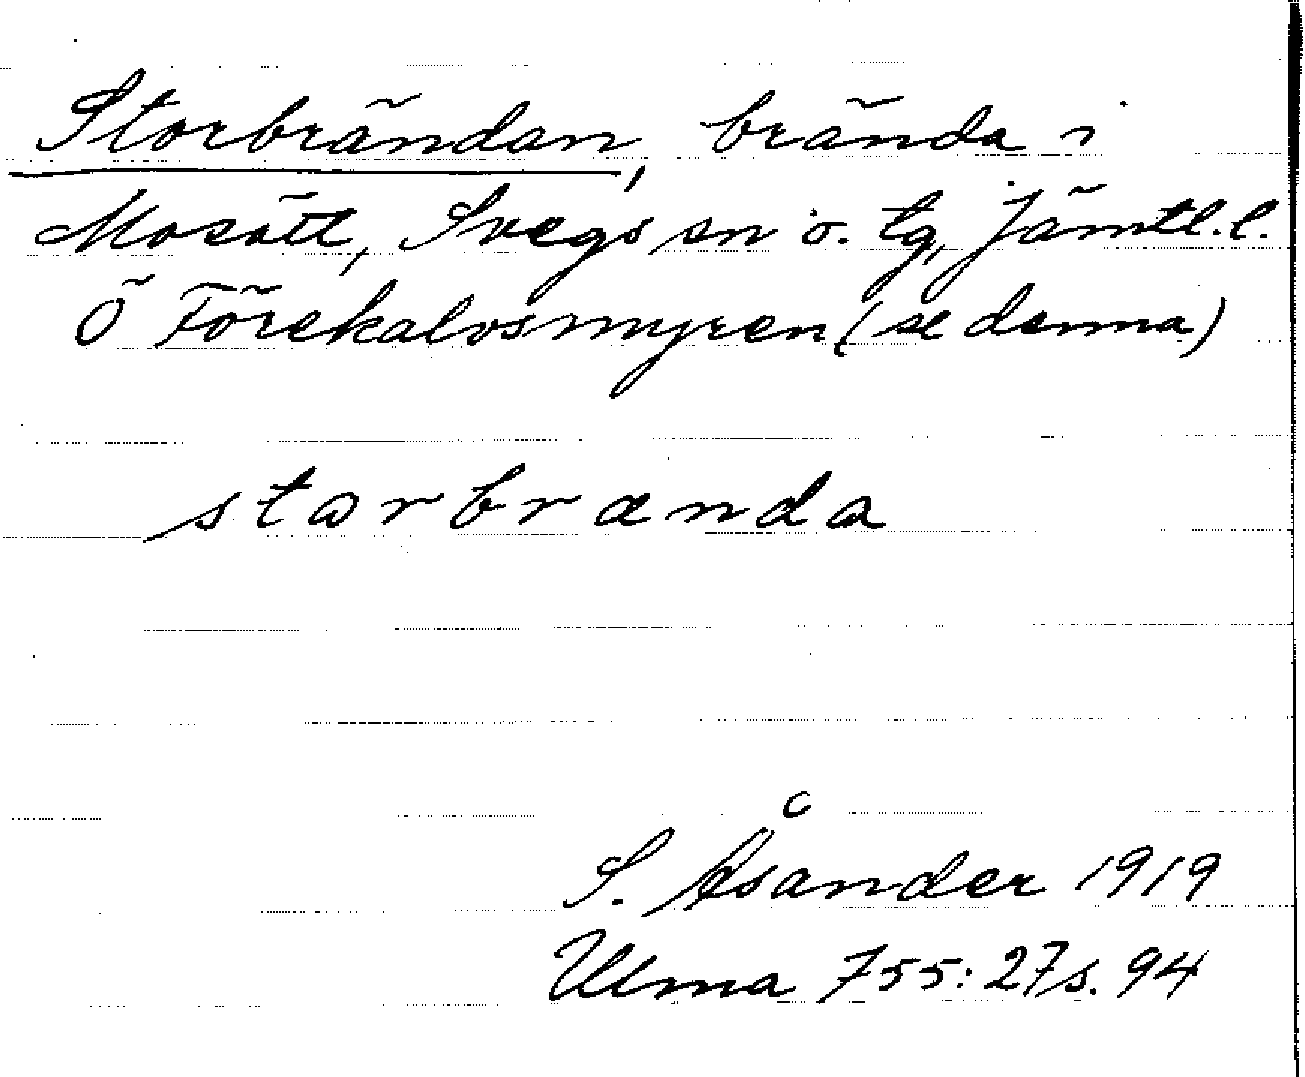 Storbrändan, brända i
Mosätt, Svegs sn o. tg, Jämtl.l.
Ö Förekalvsmyren (se denna)
storbranda
S. Åsander 1919
Ulma 755:27 s. 94